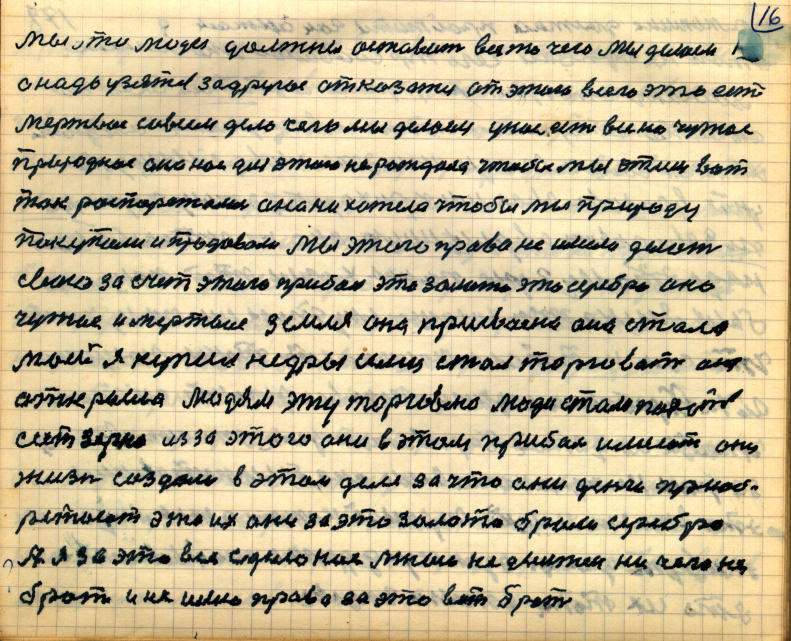 16
мы эти люди должны оставит вето чего мы делаем
а надо взятся за другое отказатся от этого всего это ест
мертвое совсем дело чего мы делаем унас ест вено чужое
природное она нас для этого не рождала чтобы мы этим вот
так распоражались она не хотела чтобы мы природу
покупали и продовали мы этого права не имели делат
свою за счет этого прибал это золото это серебро оно
чужое и мертвое земля она присвоена она стала
моей я купил недры ими стал торговат она
открылас людям эту торговлю люди стали пахат
сеят зерно из за этого они в этом прибал имеют они
жизн создали в этом деле за что они денги приоб-
ретают это их они за это золото брали серебро
А я за это все сделоное мною не движем ни чего не
брат и не имею права за это вот брат